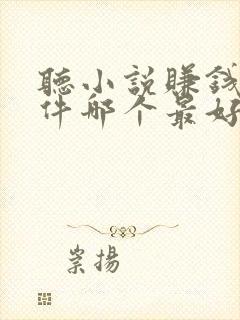 聽小說賺錢
件哪个最好
崇揚